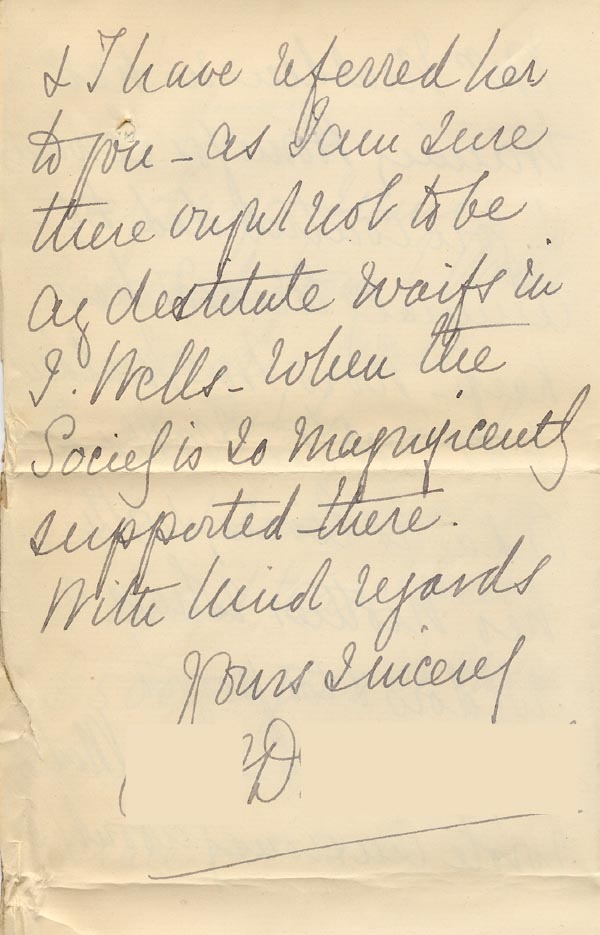 & I have referred her
to you – as I am sure
there ought not to be
any destitute waifs in
T. Wells – when the
Society is so magnificently
supported there.
With kind regards
Yours sincerely
D